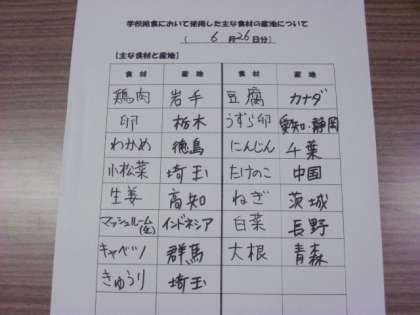 学校給食において使用した主な食材の産地について
( 6月26日分)
【主な食材と産地】
食材 産地 食材 産地
鶏肉 岩手 豆腐 カナダ
卵 栃木 うずら卵 愛知・静岡
わかめ 徳島 にんじん 千葉
小松菜 埼玉 たけのこ 中国
生姜 高知 ねぎ 茨城
マッシュルーム(缶) インドネシア 白菜 長野
キャベツ 群馬 大根 青森
きゅうり 埼玉